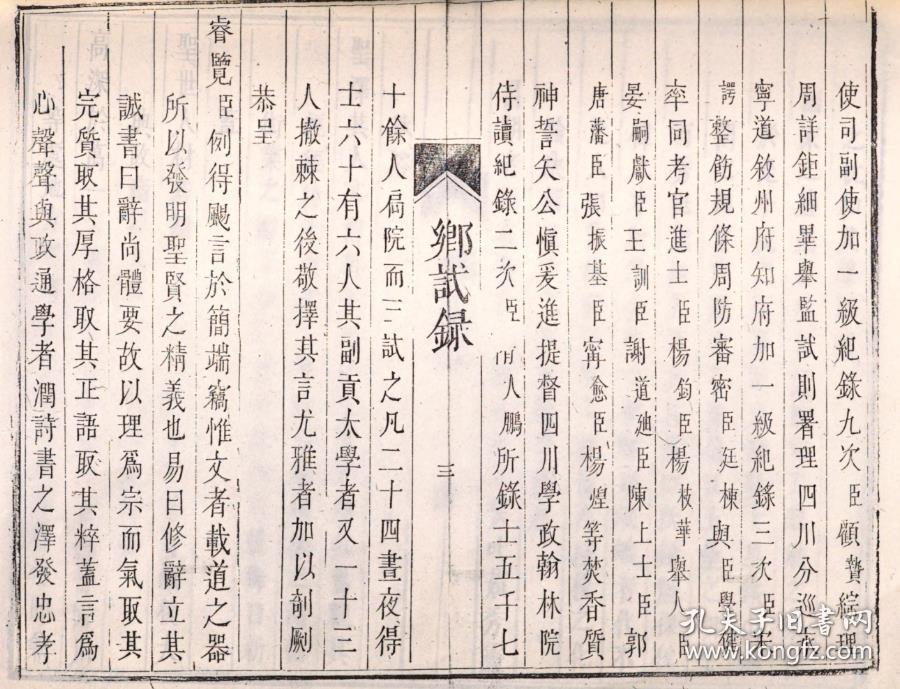 使司副使加一級紀錄九次臣顧贄綜理
周詳鉅細畢舉監試則署理四川分巡建
寧道敘州府知府加一級紀錄三次臣
諤整飭規條周防審密臣廷棟與臣學
率同考官進士臣楊鈞臣楊枝華舉人臣
晏嗣獻臣王訓臣謝道廸臣陳上士臣郭
唐藩臣張振基臣甯愈臣楊煌等焚香質
神誓矢公慎爰進提督四川學政翰林院
侍讀紀錄二次臣人鵬所錄士五千七
鄉試錄
三
十餘人扄院而三試之凡二十四晝夜得
士六十有六人其副貢太學者又一十三
人撤棘之後敬擇其言尤雅者加以剞劂
恭呈
睿覽臣例得颺言於簡端竊惟文者載道之器
所以發明聖賢之精義也易曰修辭立其
誠書曰辭尚體要故以理爲宗而氣取其
完質取其厚格取其正語取其粹蓋言爲
心聲聲與政通學者潤詩書之澤發忠孝
孔夫子旧书网
www.kongfz.com